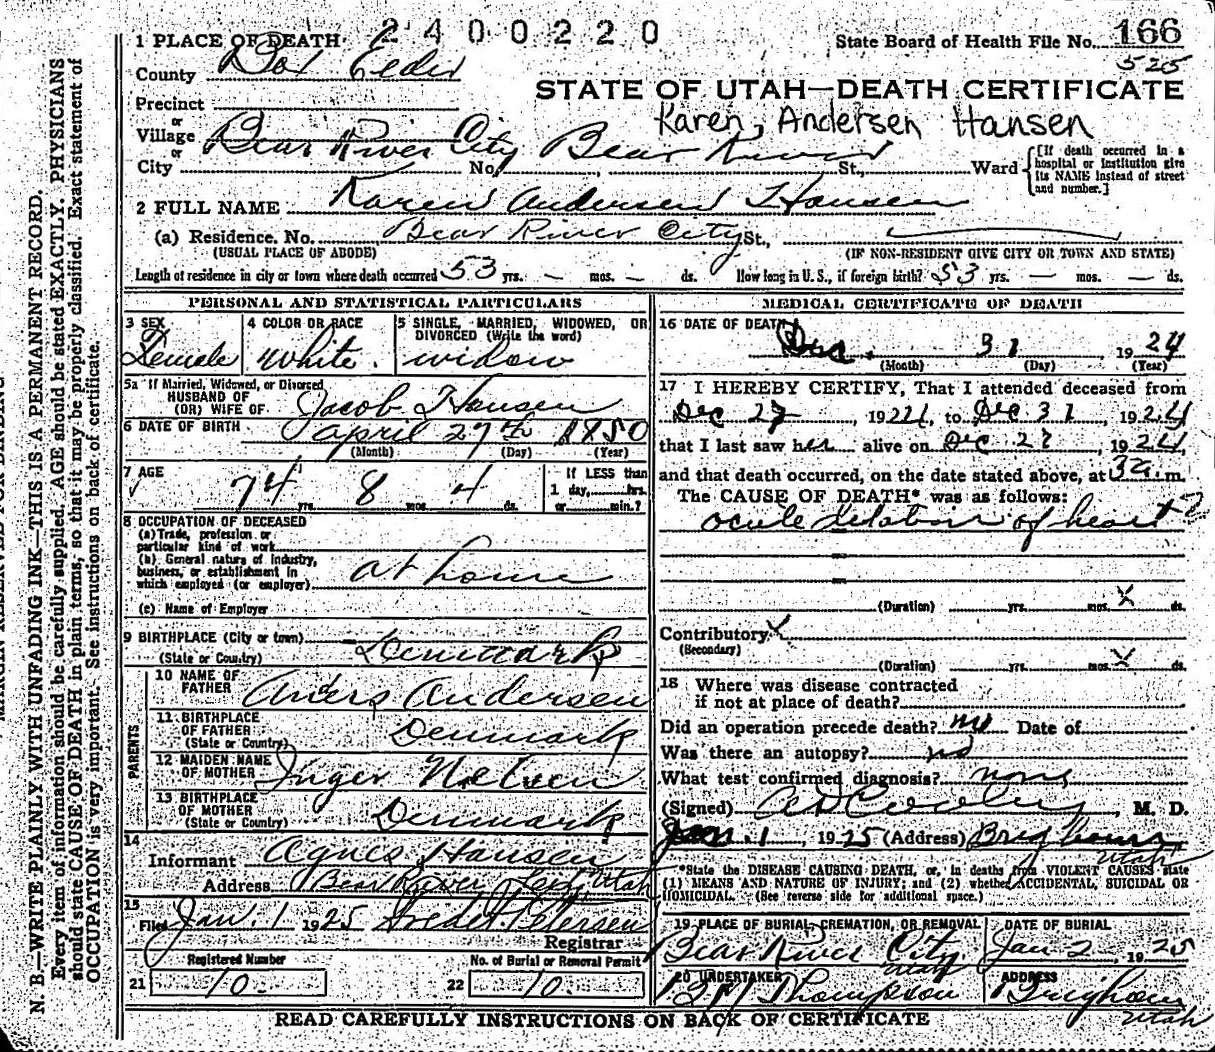 2400220
1 PLACE OF DEATH
State Board of Health File No. 166
525
County Box Elder
STATE OF UTAH—DEATH CERTIFICATE
Precinct
Karen Andersen Hansen
or
Village Bear River City Bear River
or
City No. St., Ward {[If death occurred in a hospital or institution give its NAME instead of street and number.]
2 FULL NAME Karen Andersen Hansen
(a) Residence. No. Bear River City St.,
(USUAL PLACE OF ABODE) (IF NON-RESIDENT GIVE CITY OR TOWN AND STATE)
Length of residence in city or town where death occurred 53 yrs. — mos. — ds. How long in U.S., if foreign birth? 53 yrs. — mos. — ds.
PERSONAL AND STATISTICAL PARTICULARS
3 SEX
Female
4 COLOR OR RACE
white.
5 SINGLE, MARRIED, WIDOWED, OR DIVORCED (Write the word)
widow
5a If Married, Widowed, or Divorced
HUSBAND OF
(OR) WIFE OF Jacob Hansen
6 DATE OF BIRTH April 27th 1850
(Month) (Day) (Year)
7 AGE
74 yrs. 8 mos. 4 ds.
If LESS than
1 day, hrs.
or min.?
8 OCCUPATION OF DECEASED
(a) Trade, profession or
particular kind of work
(b) General nature of industry,
business, or establishment in
which employed (or employer) at home
(c) Name of Employer
9 BIRTHPLACE (City or town)
(State or Country) Denmark
PARENTS
10 NAME OF
FATHER Anders Andersen
11 BIRTHPLACE
OF FATHER
(State or Country) Denmark
12 MAIDEN NAME
OF MOTHER Inger Nelsen
13 BIRTHPLACE
OF MOTHER
(State or Country) Denmark
14
Informant Agnes Hansen
Address Bear River City Utah
15
Filed Jan. 1 1925 Petersen
Registrar
Registered Number
21 10.
No. of Burial or Removal Permit
22 10.
MEDICAL CERTIFICATE OF DEATH
16 DATE OF DEATH
Dec. 31, 1924
(Month) (Day) (Year)
17 I HEREBY CERTIFY, That I attended deceased from
Dec 27, 1924, to Dec 31, 1924
that I last saw her alive on Dec 27, 1924,
and that death occurred, on the date stated above, at 3 a. m.
The CAUSE OF DEATH* was as follows:
acute dilation of heart?
(Duration) yrs. mos. X ds.
Contributory X
(Secondary)
(Duration) yrs. mos. X ds.
18 Where was disease contracted
if not at place of death?
Did an operation precede death? no Date of
Was there an autopsy? no
What test confirmed diagnosis? none
(Signed) M. D.
Jan. 1, 1925 (Address) Brigham
Utah
*State the DISEASE CAUSING DEATH, or, in deaths from VIOLENT CAUSES state
(1) MEANS AND NATURE OF INJURY; and (2) whether ACCIDENTAL, SUICIDAL OR
HOMICIDAL. (See reverse side for additional space.)
19 PLACE OF BURIAL, CREMATION, OR REMOVAL
Bear River City
Utah
DATE OF BURIAL
Jan 2, 1925
20 UNDERTAKER
Thompson
ADDRESS
Brigham
Utah
READ CAREFULLY INSTRUCTIONS ON BACK OF CERTIFICATE
N. B.—WRITE PLAINLY WITH UNFADING INK—THIS IS A PERMANENT RECORD.
Every item of information should be carefully supplied. AGE should be stated EXACTLY. PHYSICIANS
should state CAUSE OF DEATH in plain terms, so that it may be properly classified. Exact statement of
OCCUPATION is very important. See instructions on back of certificate.